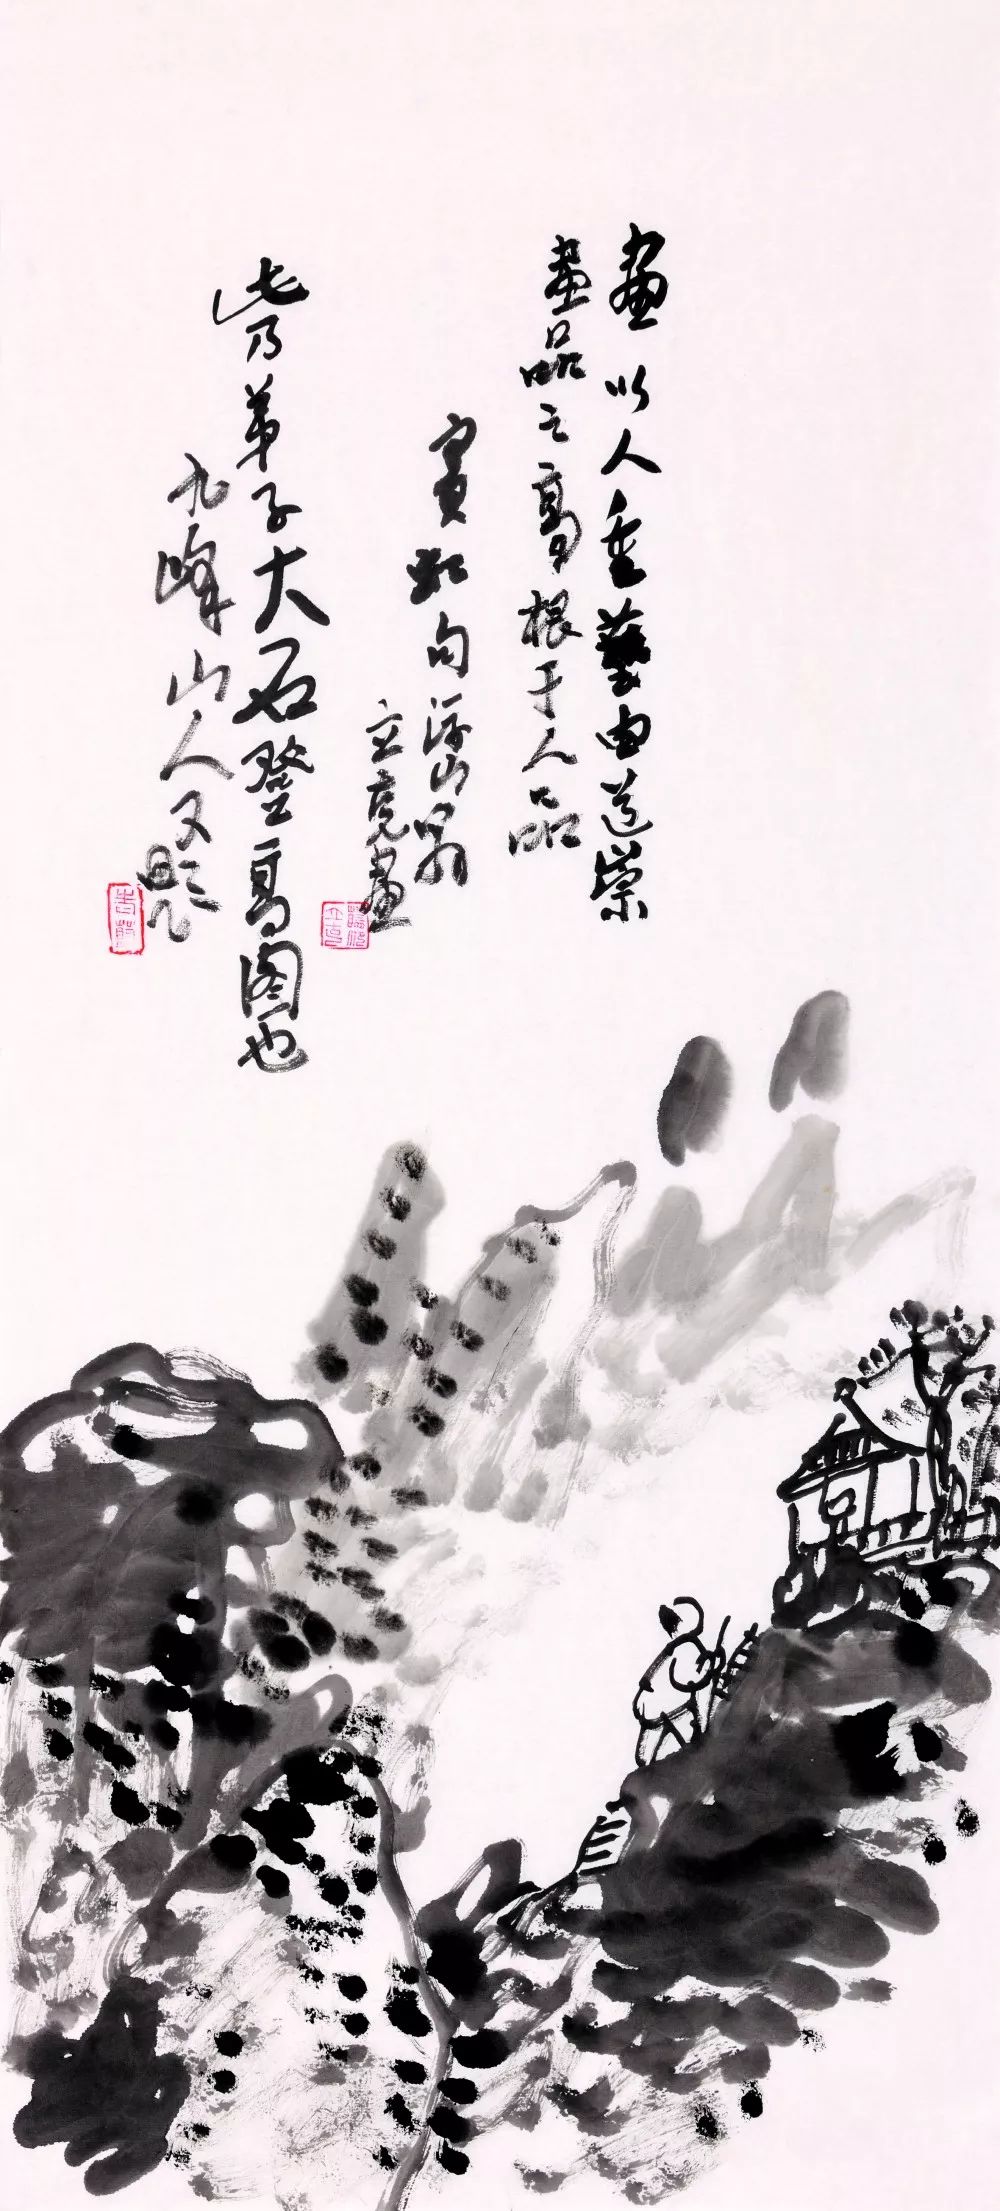 画以人重藝由道崇
畫品之高根于人品
賓虹句浮山翁
立亮畫
此乃弟子大石登高图也
九峰山人又题